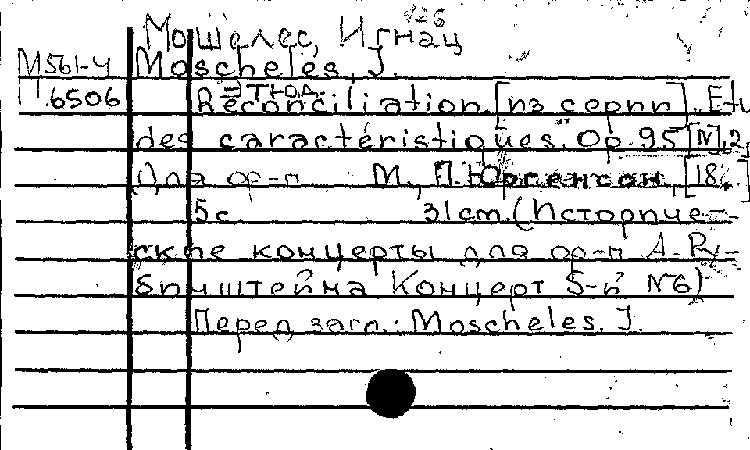 Мошелес, Игнац
М561-4 Moscheles, J.
П6506 = Этюд.
Réconciliation [из серии] Etu
des caractéristiques. Op. 95 [N] 2,
Для ф-п М., П. Юргенсон, [18..]
5 с 31 cm. (Историче-
ские концерты для ф-п А. Ру-
бинштейна Концерт 5-й №6)
Перед загл.: Moscheles. J.